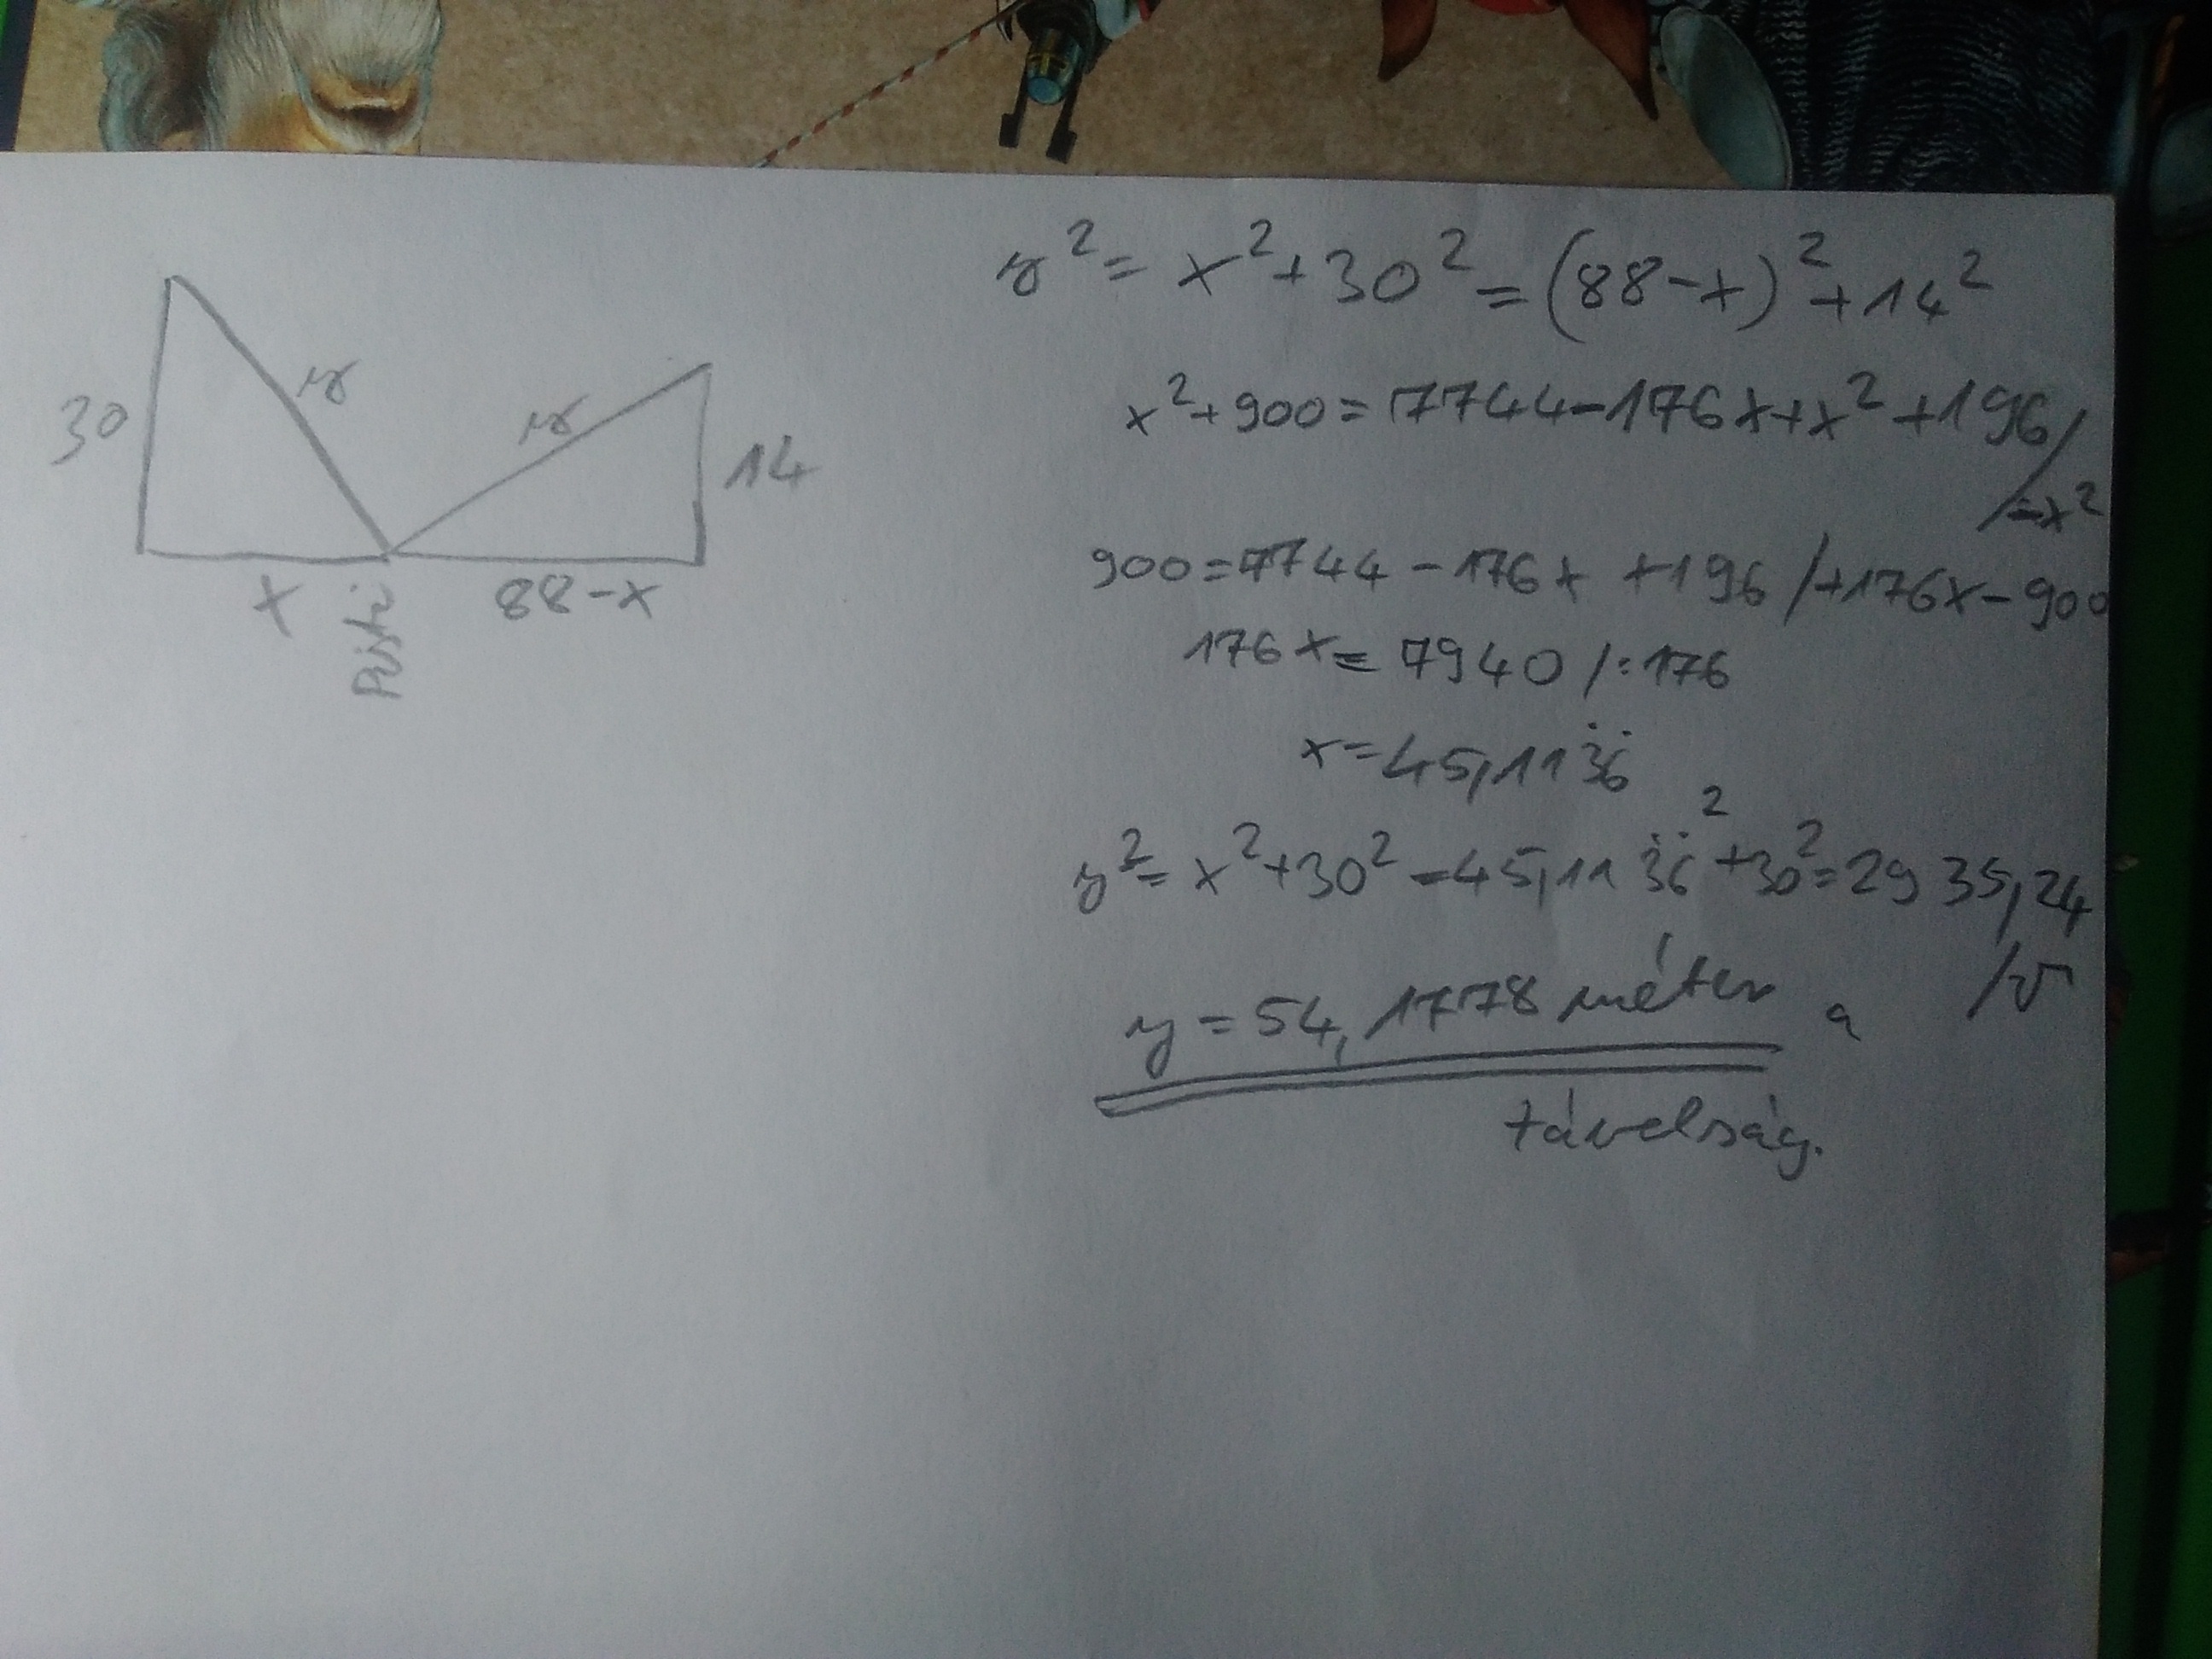 30
y
y
14
x
Pisti
88-x
y² = x²+30² = (88-x)²+14²
x²+900=7744-176x+x²+196/
/-x²
900=7744-176x +196 /+176x-900
176x=7940 /:176
x=45,113̇6̇
y²=x²+30²=45,113̇6̇²+30²=2935,24
/√
y=54,1778 méter a
távolság.